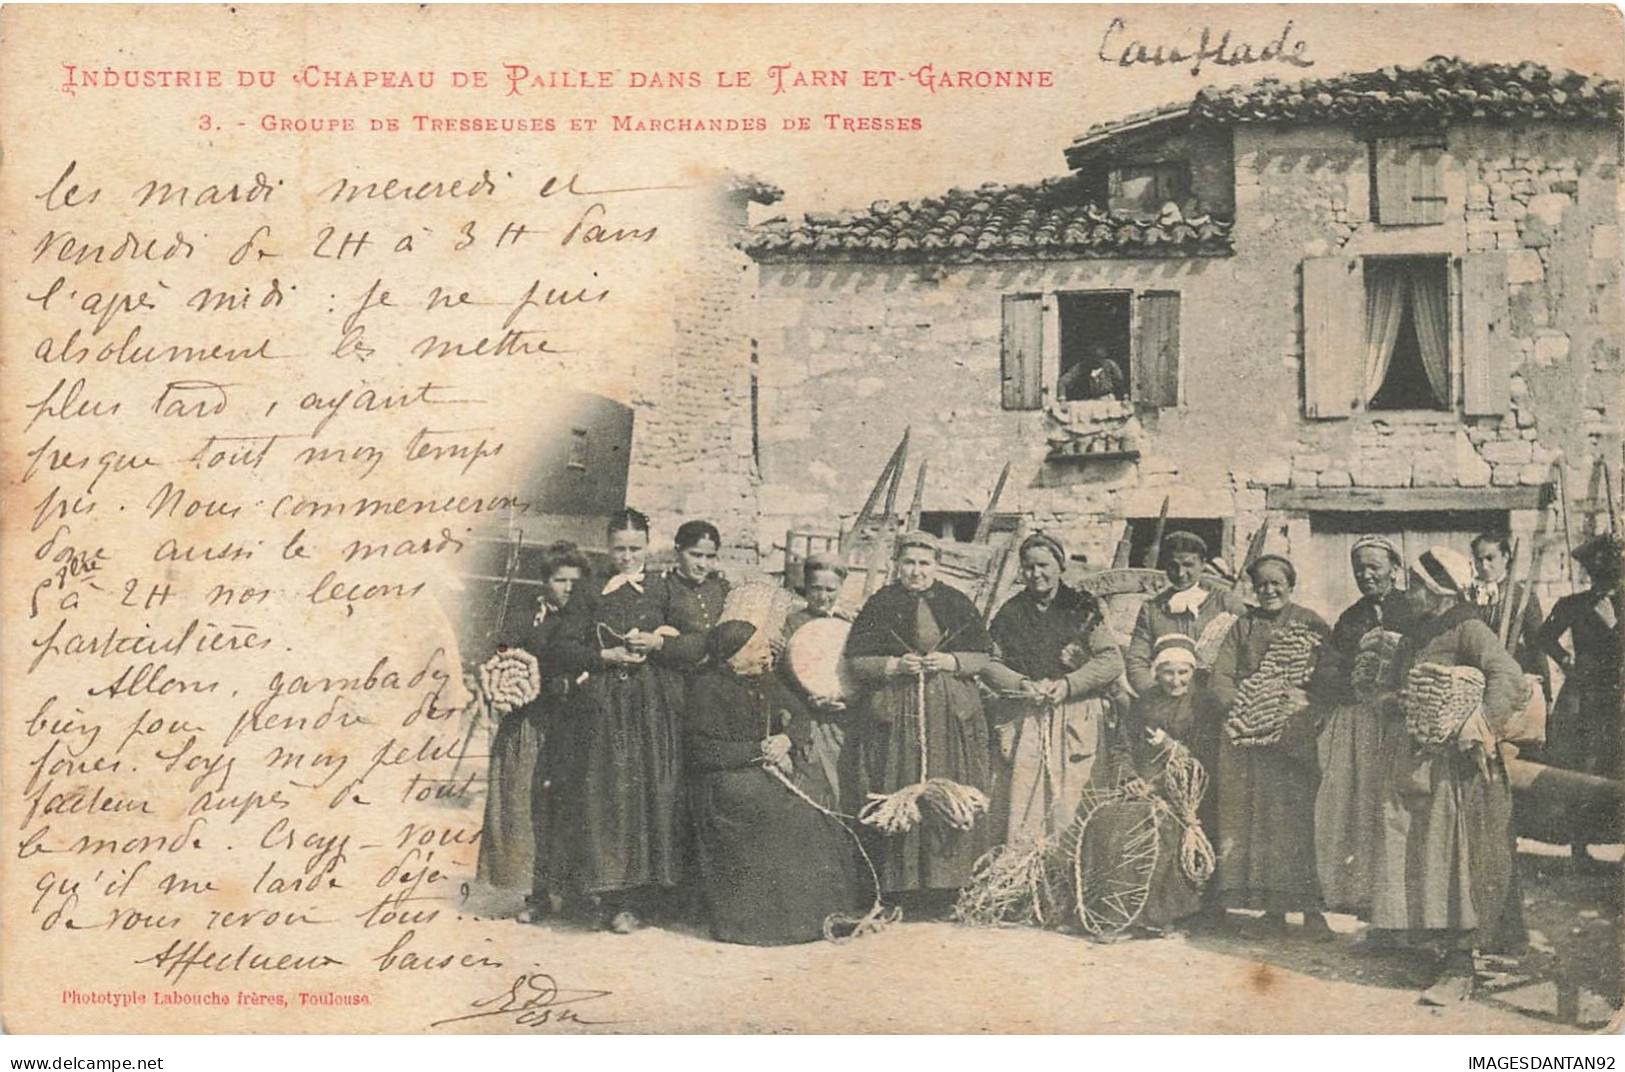 Caussade
INDUSTRIE DU CHAPEAU DE PAILLE DANS LE TARN-ET-GARONNE
3. - GROUPE DE TRESSEUSES ET MARCHANDES DE TRESSES
les mardi mercredi et
vendredi de 2H à 3H dans
l'après midi : je ne puis
absolument les mettre
plus tard, ayant
presque tout mon temps
pris. Nous commencerons
donc aussi le mardi
à 2H nos leçons
particulières.
Allons, gambadez
bien pour prendre des
forces. Soyez mon petit
facteur auprès de tout
le monde. Croyez-vous
qu'il me tarde déjà
de vous revoir tous ?...
Affectueux baisers.
Phototypie Labouche frères, Toulouse
delcampe.net
IMAGESDANTAN92